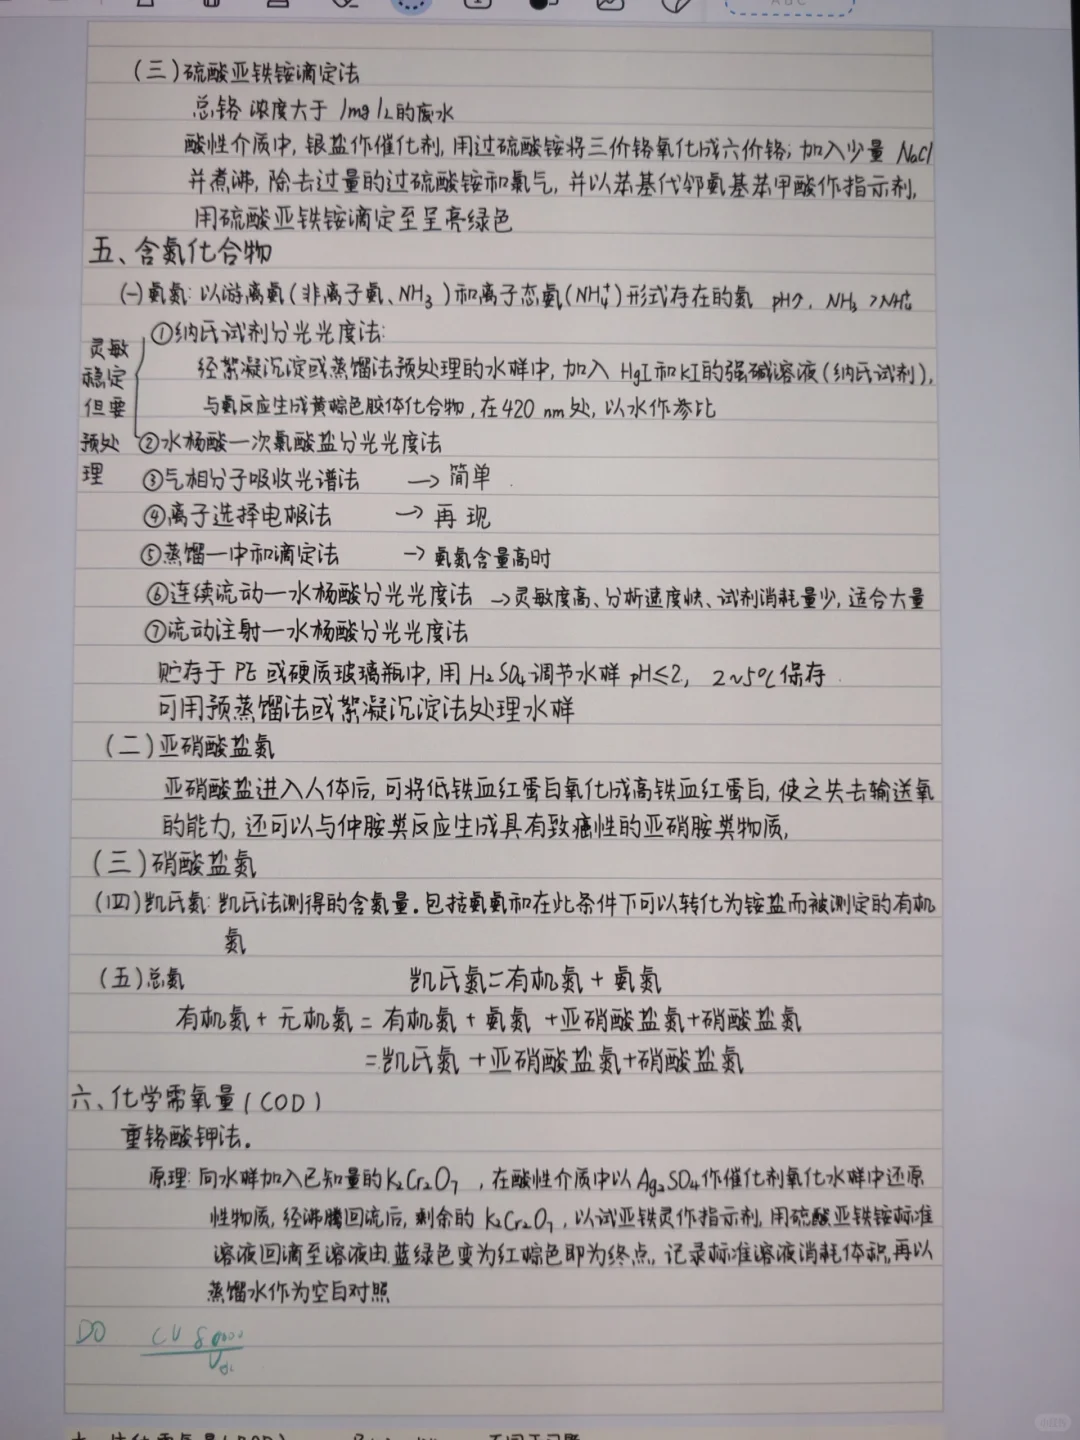 ABC
(三)硫酸亚铁铵滴定法
总铬 浓度大于 1mg/L的废水
酸性介质中, 银盐作催化剂, 用过硫酸铵将三价铬氧化成六价铬; 加入少量 NaCl
并煮沸, 除去过量的过硫酸铵和氯气, 并以苯基代邻氨基苯甲酸作指示剂,
用硫酸亚铁铵滴定至呈亮绿色
五、含氮化合物
(一)氨氮: 以游离氨(非离子氨、NH₃)和离子态氨(NH₄⁺)形式存在的氮 pH↗, NH₃>NH₄⁺
①纳氏试剂分光光度法:
灵敏
稳定
但要
预处
理
经絮凝沉淀或蒸馏法预处理的水样中, 加入 HgI和KI的强碱溶液(纳氏试剂),
与氨反应生成黄棕色胶体化合物, 在420 nm处, 以水作参比
②水杨酸—次氯酸盐分光光度法
③气相分子吸收光谱法 → 简单
④离子选择电极法 → 再现
⑤蒸馏—中和滴定法 → 氨氮含量高时
⑥连续流动—水杨酸分光光度法 →灵敏度高、分析速度快、试剂消耗量少, 适合大量
⑦流动注射—水杨酸分光光度法
贮存于 PE 或硬质玻璃瓶中, 用 H₂SO₄调节水样 pH≤2, 2~5℃保存
可用预蒸馏法或絮凝沉淀法处理水样
(二)亚硝酸盐氮
亚硝酸盐进入人体后, 可将低铁血红蛋白氧化成高铁血红蛋白, 使之失去输送氧
的能力, 还可以与仲胺类反应生成具有致癌性的亚硝胺类物质,
(三)硝酸盐氮
(四)凯氏氮: 凯氏法测得的含氮量. 包括氨氮和在此条件下可以转化为铵盐而被测定的有机
氮
(五)总氮 凯氏氮=有机氮 + 氨氮
有机氮 + 无机氮 = 有机氮 + 氨氮 +亚硝酸盐氮+硝酸盐氮
=凯氏氮 +亚硝酸盐氮+硝酸盐氮
六、化学需氧量(COD)
重铬酸钾法.
原理: 向水样加入已知量的K₂Cr₂O₇, 在酸性介质中以 Ag₂SO₄作催化剂氧化水样中还原
性物质, 经沸腾回流后, 剩余的 K₂Cr₂O₇, 以试亚铁灵作指示剂, 用硫酸亚铁铵标准
溶液回滴至溶液由蓝绿色变为红棕色即为终点, 记录标准溶液消耗体积, 再以
蒸馏水作为空白对照
DO CV 8000
小红书